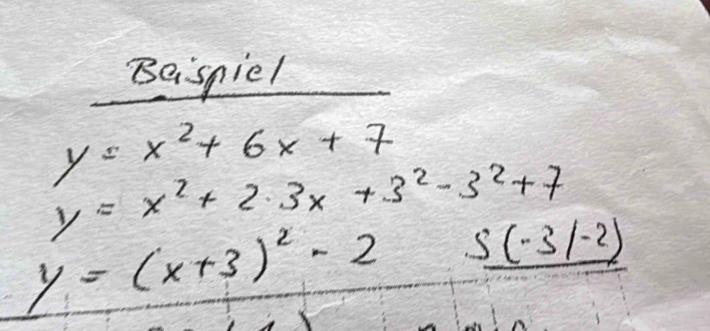 Beispiel
y = x² + 6x + 7
y = x² + 2·3x + 3² - 3² + 7
y = (x+3)² - 2 S(-3/-2)